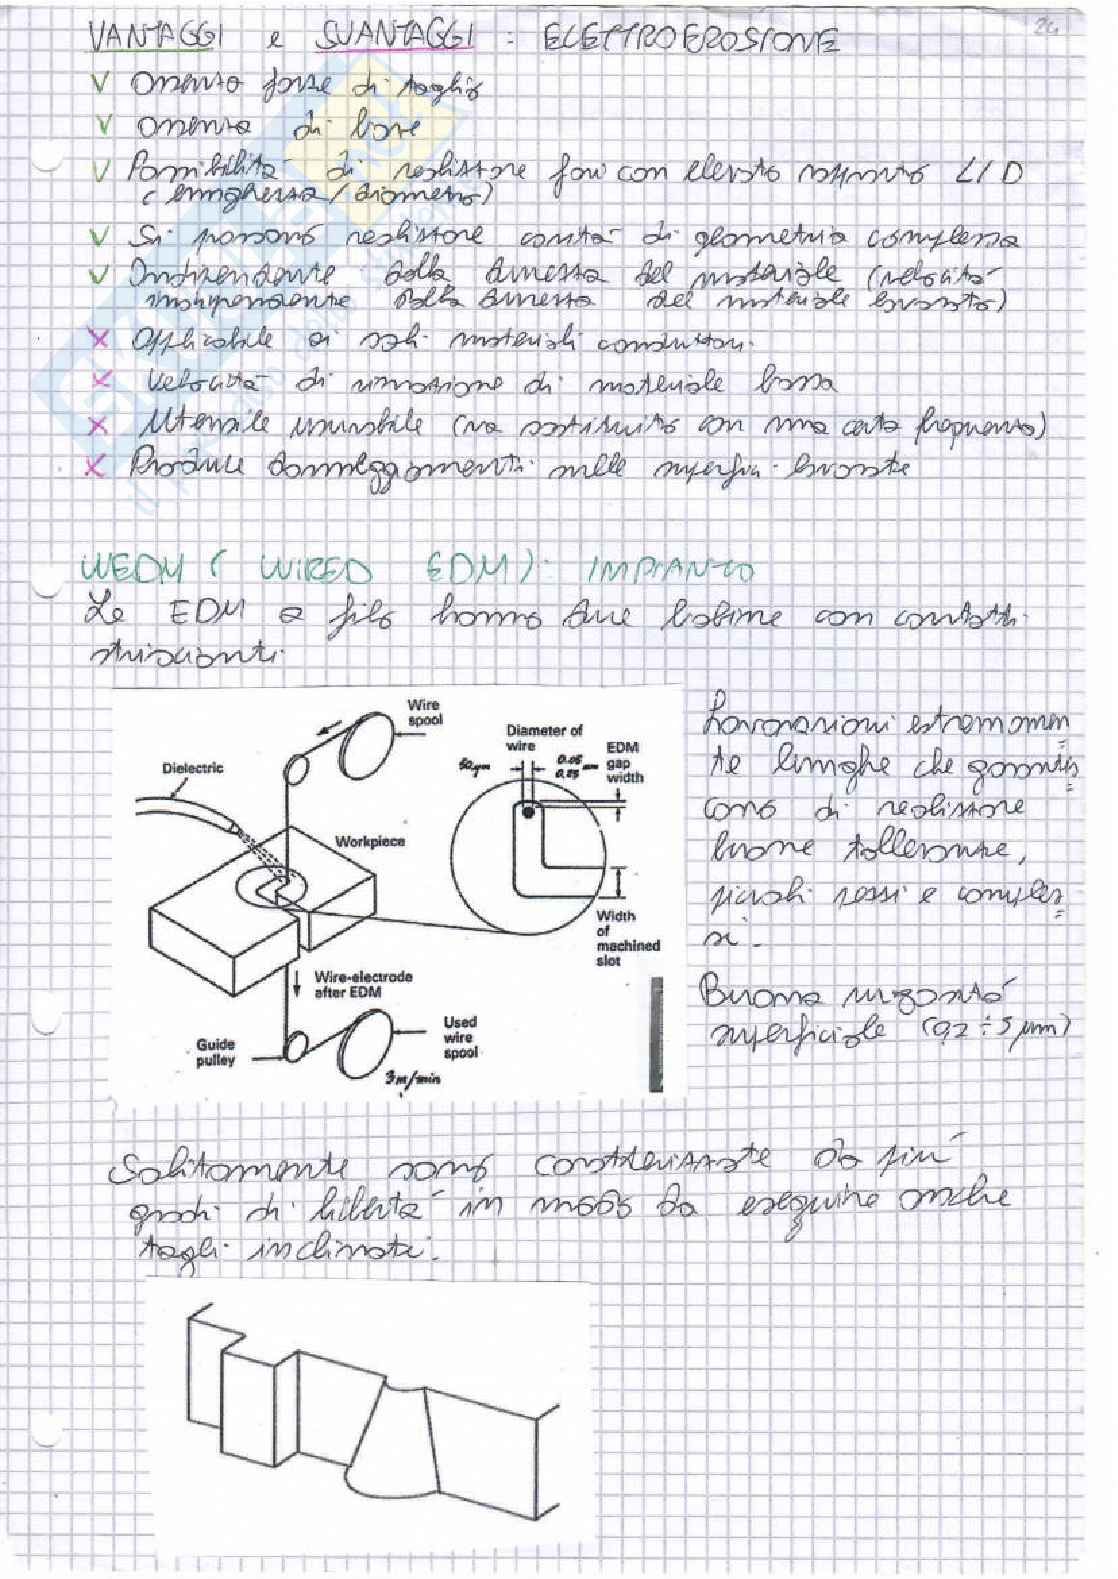 24
VANTAGGI e SVANTAGGI : ELETTROEROSIONE
V Assenza forze di taglio
V assenza di bave
V Possibilità di realizzare fori con elevato rapporto L/D
(lunghezza/diametro)
V Si possono realizzare cavità di geometria complessa
V Indipendente dalla durezza del materiale (velocità
indipendente dalla durezza del materiale lavorato)
X Applicabile ai soli materiali conduttori.
X Velocità di rimozione di materiale bassa
X Utensile usurabile (va sostituito con una certa frequenza)
X Produce danneggiamenti sulle superfici lavorate
WEDM (WIRED EDM): IMPIANTO
Le EDM a filo hanno due bobine con contatti
striscianti.
Wire
spool
Diameter of
wire
EDM
gap
width
50 μm
0.05
0.25 mm
Dielectric
Workpiece
Width
of
machined
slot
Wire-electrode
after EDM
Guide
pulley
Used
wire
spool
3m/min
Lavorazioni estremamen
te lunghe che garantis
cono di realizzare
buone tolleranze,
piccoli pezzi e comples
si.
Buona rugosità
superficiale (0,2 ÷ 5 μm)
Solitamente sono caratterizzate da più
gradi di libertà in modo da eseguire anche
tagli inclinati: